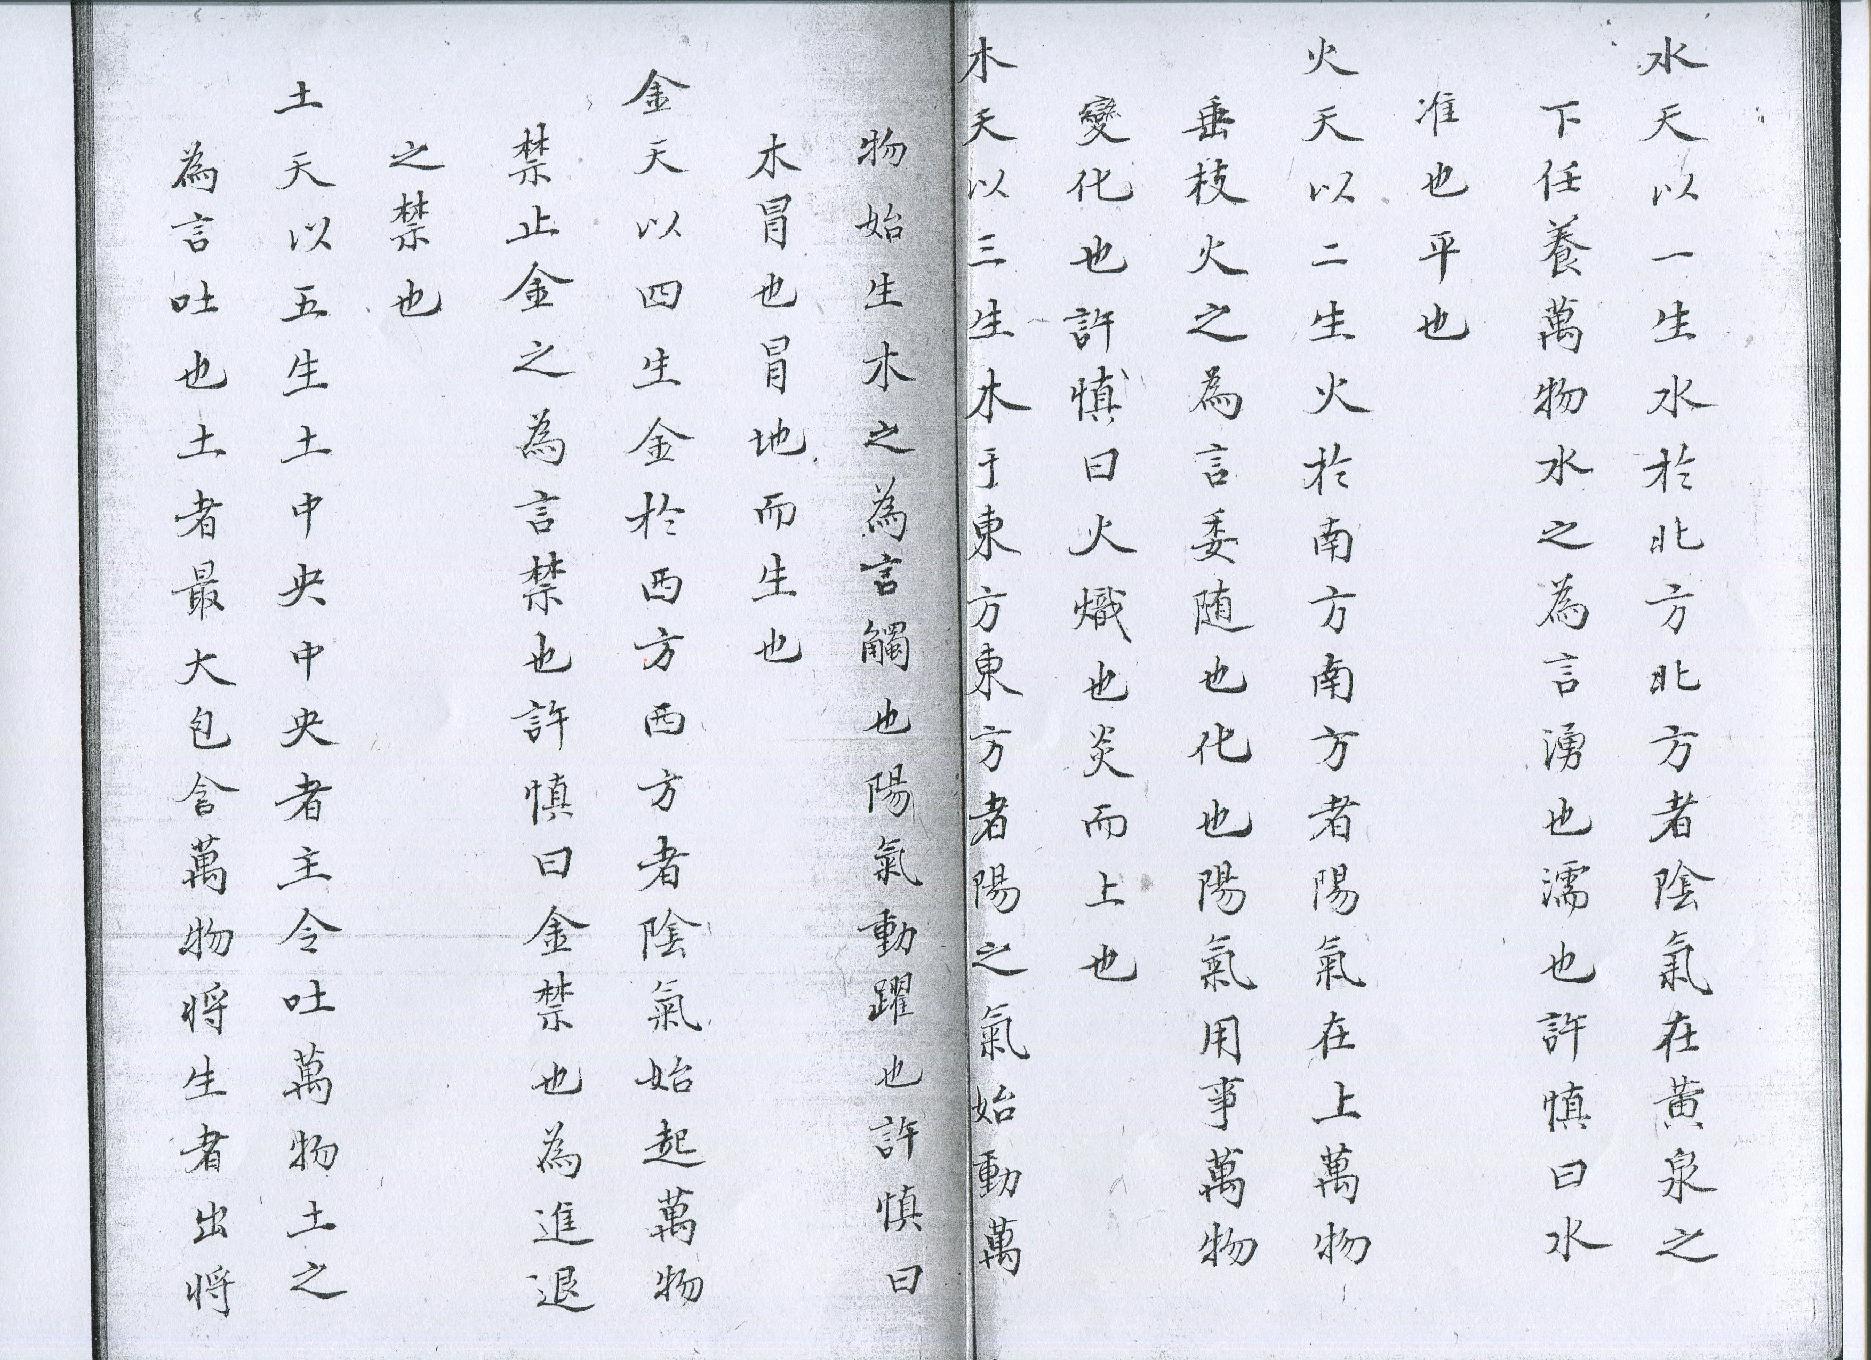 水天以一生水於北方北方者陰氣在黃泉之
下任養萬物水之為言湧也濡也許慎曰水
准也平也
火天以二生火於南方南方者陽氣在上萬物
垂枝火之為言委随也化也陽氣用事萬物
變化也許慎曰火熾也炎而上也
木天以三生木于東方東方者陽之氣始動萬
物始生木之為言觸也陽氣動躍也許慎曰
木冒也冒地而生也
金天以四生金於西方西方者陰氣始起萬物
禁止金之為言禁也許慎曰金禁也為進退
之禁也
土天以五生土中央中央者主令吐萬物土之
為言吐也土者最大包含萬物将生者出将